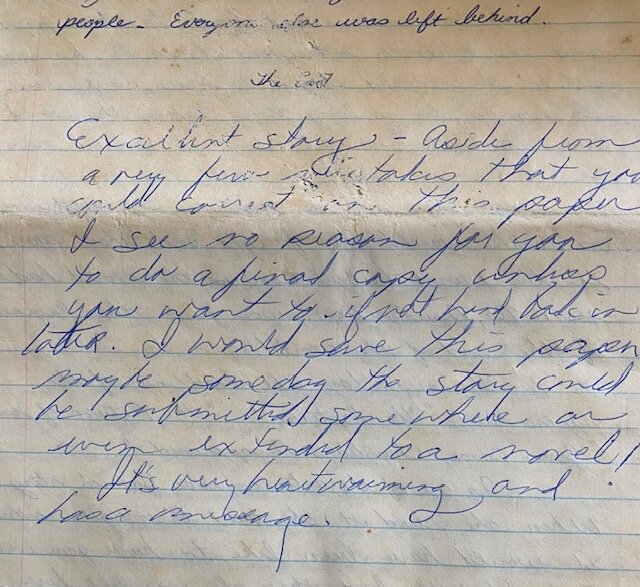 people - Everyone else was left behind.
The End
Excellent story - Aside from
a very few mistakes that you
could correct on this paper
I see no reason for you
to do a final copy unless
you want to - if not hand back in
later. I would save this paper
maybe someday the story could
be submitted somewhere or
even extended to a novel!
It's very heartwarming and
has a message.